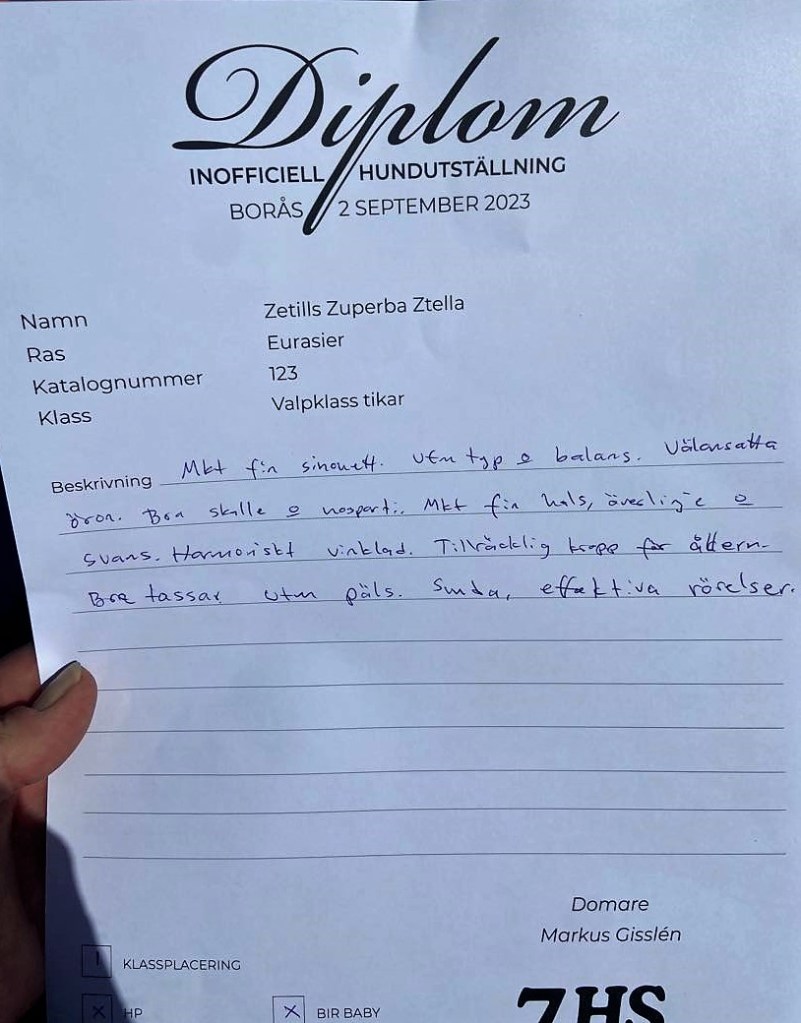 Diplom
INOFFICIELL HUNDUTSTÄLLNING
BORÅS 2 SEPTEMBER 2023
Namn Zetills Zuperba Ztella
Ras Eurasier
Katalognummer 123
Klass Valpklass tikar
Beskrivning Mkt fin sinouett. Utm typ o balans. Välansatta
öron. Bra skalle o nosparti. Mkt fin hals, överlinje o
svans. Harmoniskt vinklad. Tillräcklig kropp för åldern.
Bra tassar. Utm päls. Sunda, effektiva rörelser.
Domare
Markus Gisslén
1 KLASSPLACERING
X HP X BIR BABY
7HS